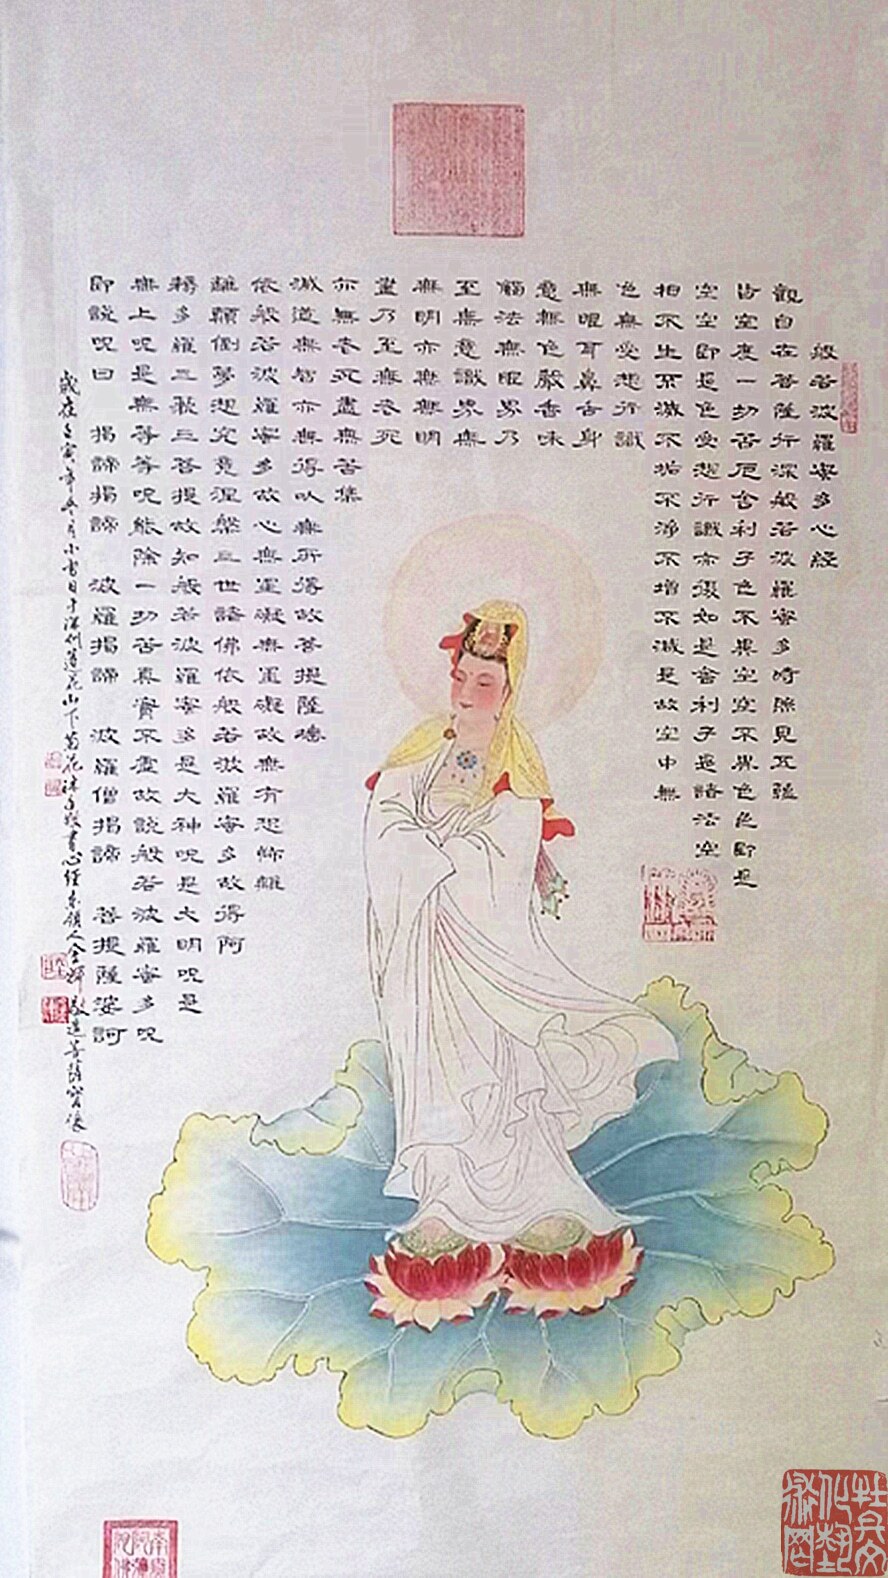 般若波羅蜜多心經
觀自在菩薩行深般若波羅蜜多時照見五蘊
皆空度一切苦厄舍利子色不異空空不異色色即是
空空即是色受想行識亦復如是舍利子是諸法空
相不生不滅不垢不淨不增不減是故空中無
色無受想行識
無眼耳鼻舌身
意無色聲香味
觸法無眼界乃
至無意識界無
無明亦無無明
盡乃至無老死
亦無老死盡無苦集
滅道無智亦無得以無所得故菩提薩埵
依般若波羅蜜多故心無罣礙無罣礙故無有恐怖
離顛倒夢想究竟涅槃三世諸佛依般若波羅蜜多故得阿
耨多羅三藐三菩提故知般若波羅蜜多是大神咒是大明咒是
無上咒是無等等咒能除一切苦真實不虛故說般若波羅蜜多咒
即說咒曰 揭諦揭諦 波羅揭諦 波羅僧揭諦 菩提薩婆訶
歲在壬寅年 月小 日於深圳蓮花山下菊花 書心經 人金輝敬造菩薩寶像
牡丹文化藝術網